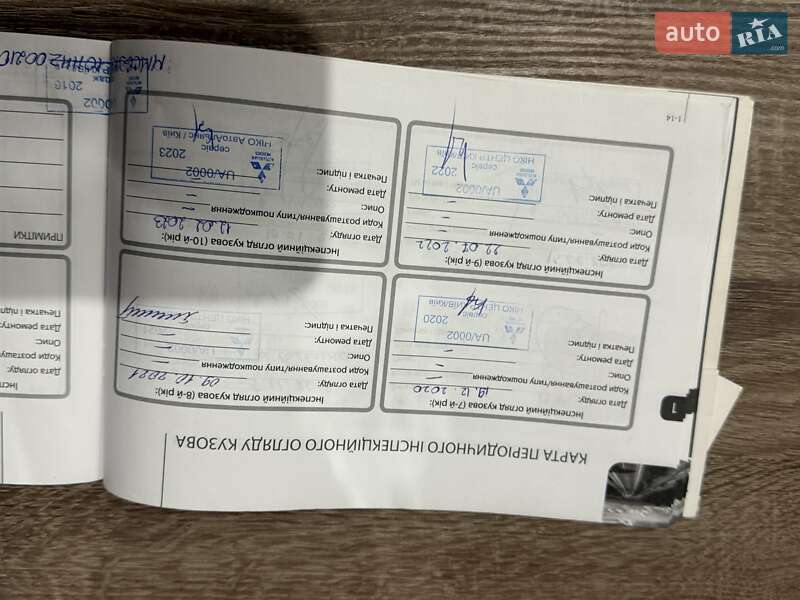 КАРТА ПЕРІОДИЧНОГО ІНСПЕКЦІЙНОГО ОГЛЯДУ КУЗОВА
1
Інспекційний огляд кузова (7-й рік):
Дата огляду: 19.12.2020
Коди розташування/типу пошкодження –
Опис: –
Дата ремонту: –
Печатка і підпис:
UA/0002
сервіс 2020
НІКО ЦЕНТР КИЇВ/Київ
Інспекційний огляд кузова (8-й рік):
Дата огляду: 09.10.2021
Коди розташування/типу пошкодження –
Опис: –
Дата ремонту: –
Печатка і підпис:
UA/0002
Інспекційний огляд кузова (9-й рік):
Дата огляду: 22.07.2022
Коди розташування/типу пошкодження
Опис: –
Дата ремонту: –
Печатка і підпис:
UA/0002
сервіс 2022
НІКО ЦЕНТР КИЇВ/Київ
Інспекційний огляд кузова (10-й рік):
Дата огляду: 12.02.2023
Коди розташування/типу пошкодження
Опис: –
Дата ремонту: –
Печатка і підпис:
UA/0002
сервіс 2023
НІКО АвтоАльянс / Київ
1-14
Дата огляду:
Коди розташу
Опис:
Дата ремонту:
Печатка і підпис:
ПРИМІТКИ
/0002
2016
auto RIA.com